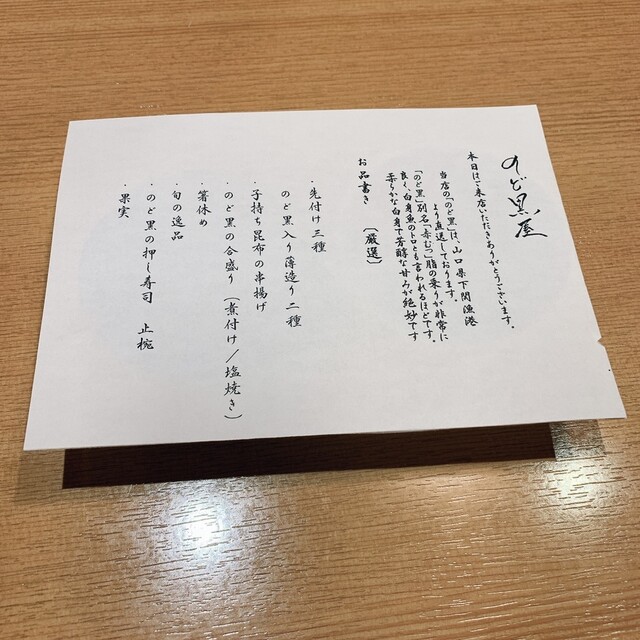 のど黒屋
本日はご来店いただきありがとうございます。
当店の「のど黒」は、山口県下関漁港
より直送しております。
「のど黒」別名「赤むつ」脂の乗りが非常に
良く、白身魚のトロとも言われるほどです。
柔らかな白身で芳醇な甘みが絶妙です
お品書き 〔厳選〕
・先付け三種
のど黒入り薄造り二種
子持ち昆布の串揚げ
・のど黒の合盛り（煮付け／塩焼き）
箸休め
・旬の逸品
・のど黒の押し寿司 止椀
・果実